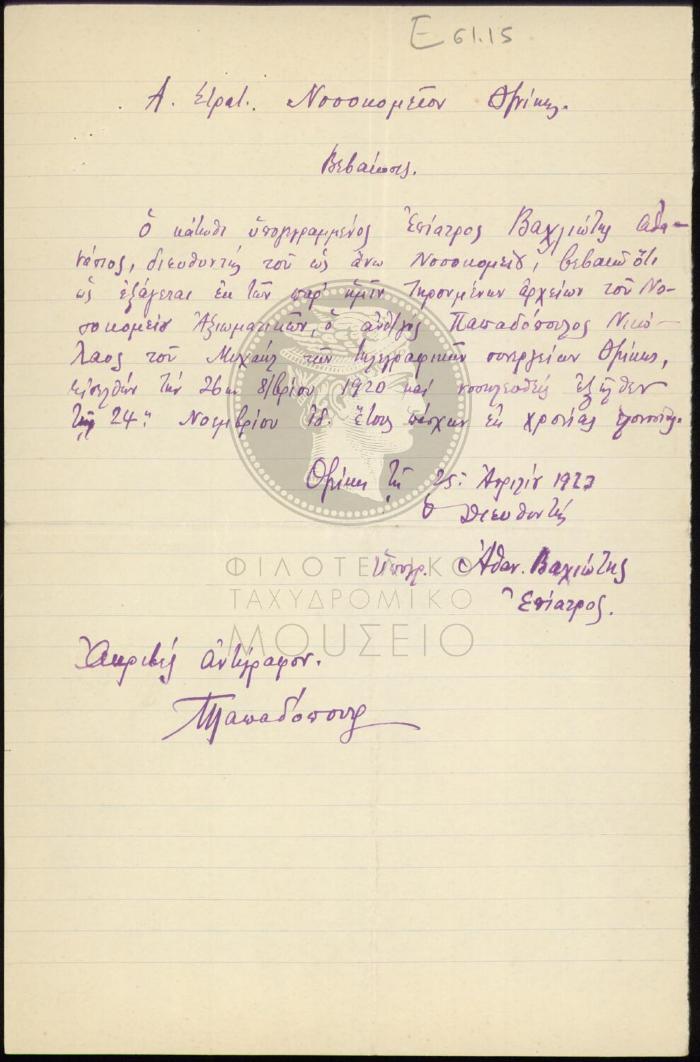 E 61.15
Α. Στρατ. Νοσοκομεῖον Θρᾴκης.
Βεβαίωσις.
Ὁ κάτωθι ὑπογεγραμμένος Ἐπίατρος Βαχλιώτης Ἀθα-
νάσιος, διευθυντής τοῦ ὡς ἄνω Νοσοκομείου, βεβαιῶ ὅτι
ὡς ἐξάγεται ἐκ τῶν παρ' ἡμῖν τηρουμένων ἀρχείων τοῦ Νο-
σοκομείου Ἀξιωματικῶν, ὁ ἀνθλγός Παπαδόπουλος Νικό-
λαος τοῦ Μιχαήλ τῶν τηλεγραφικῶν συνεργείων Θρᾴκης,
εἰσελθών τήν 26ην 8/βρίου 1920 καί νοσηλευθείς ἐξῆλθεν
τῇ 24ῃ Νοεμβρίου ἰδ. ἔτους πάσχων ἐκ χρονίας
Θρᾴκη τῇ 25ῃ Ἀπριλίου 1922
Ὁ Διευθυντής
Ὑπογρ. Ἀθαν. Βαχλιώτης
Ἐπίατρος.
ΦΙΛΟΤΕΛΙΚΟ
ΤΑΧΥΔΡΟΜΙΚΟ
ΜΟΥΣΕΙΟ
Ἀκριβές ἀντίγραφον.
Παπαδόπουλος